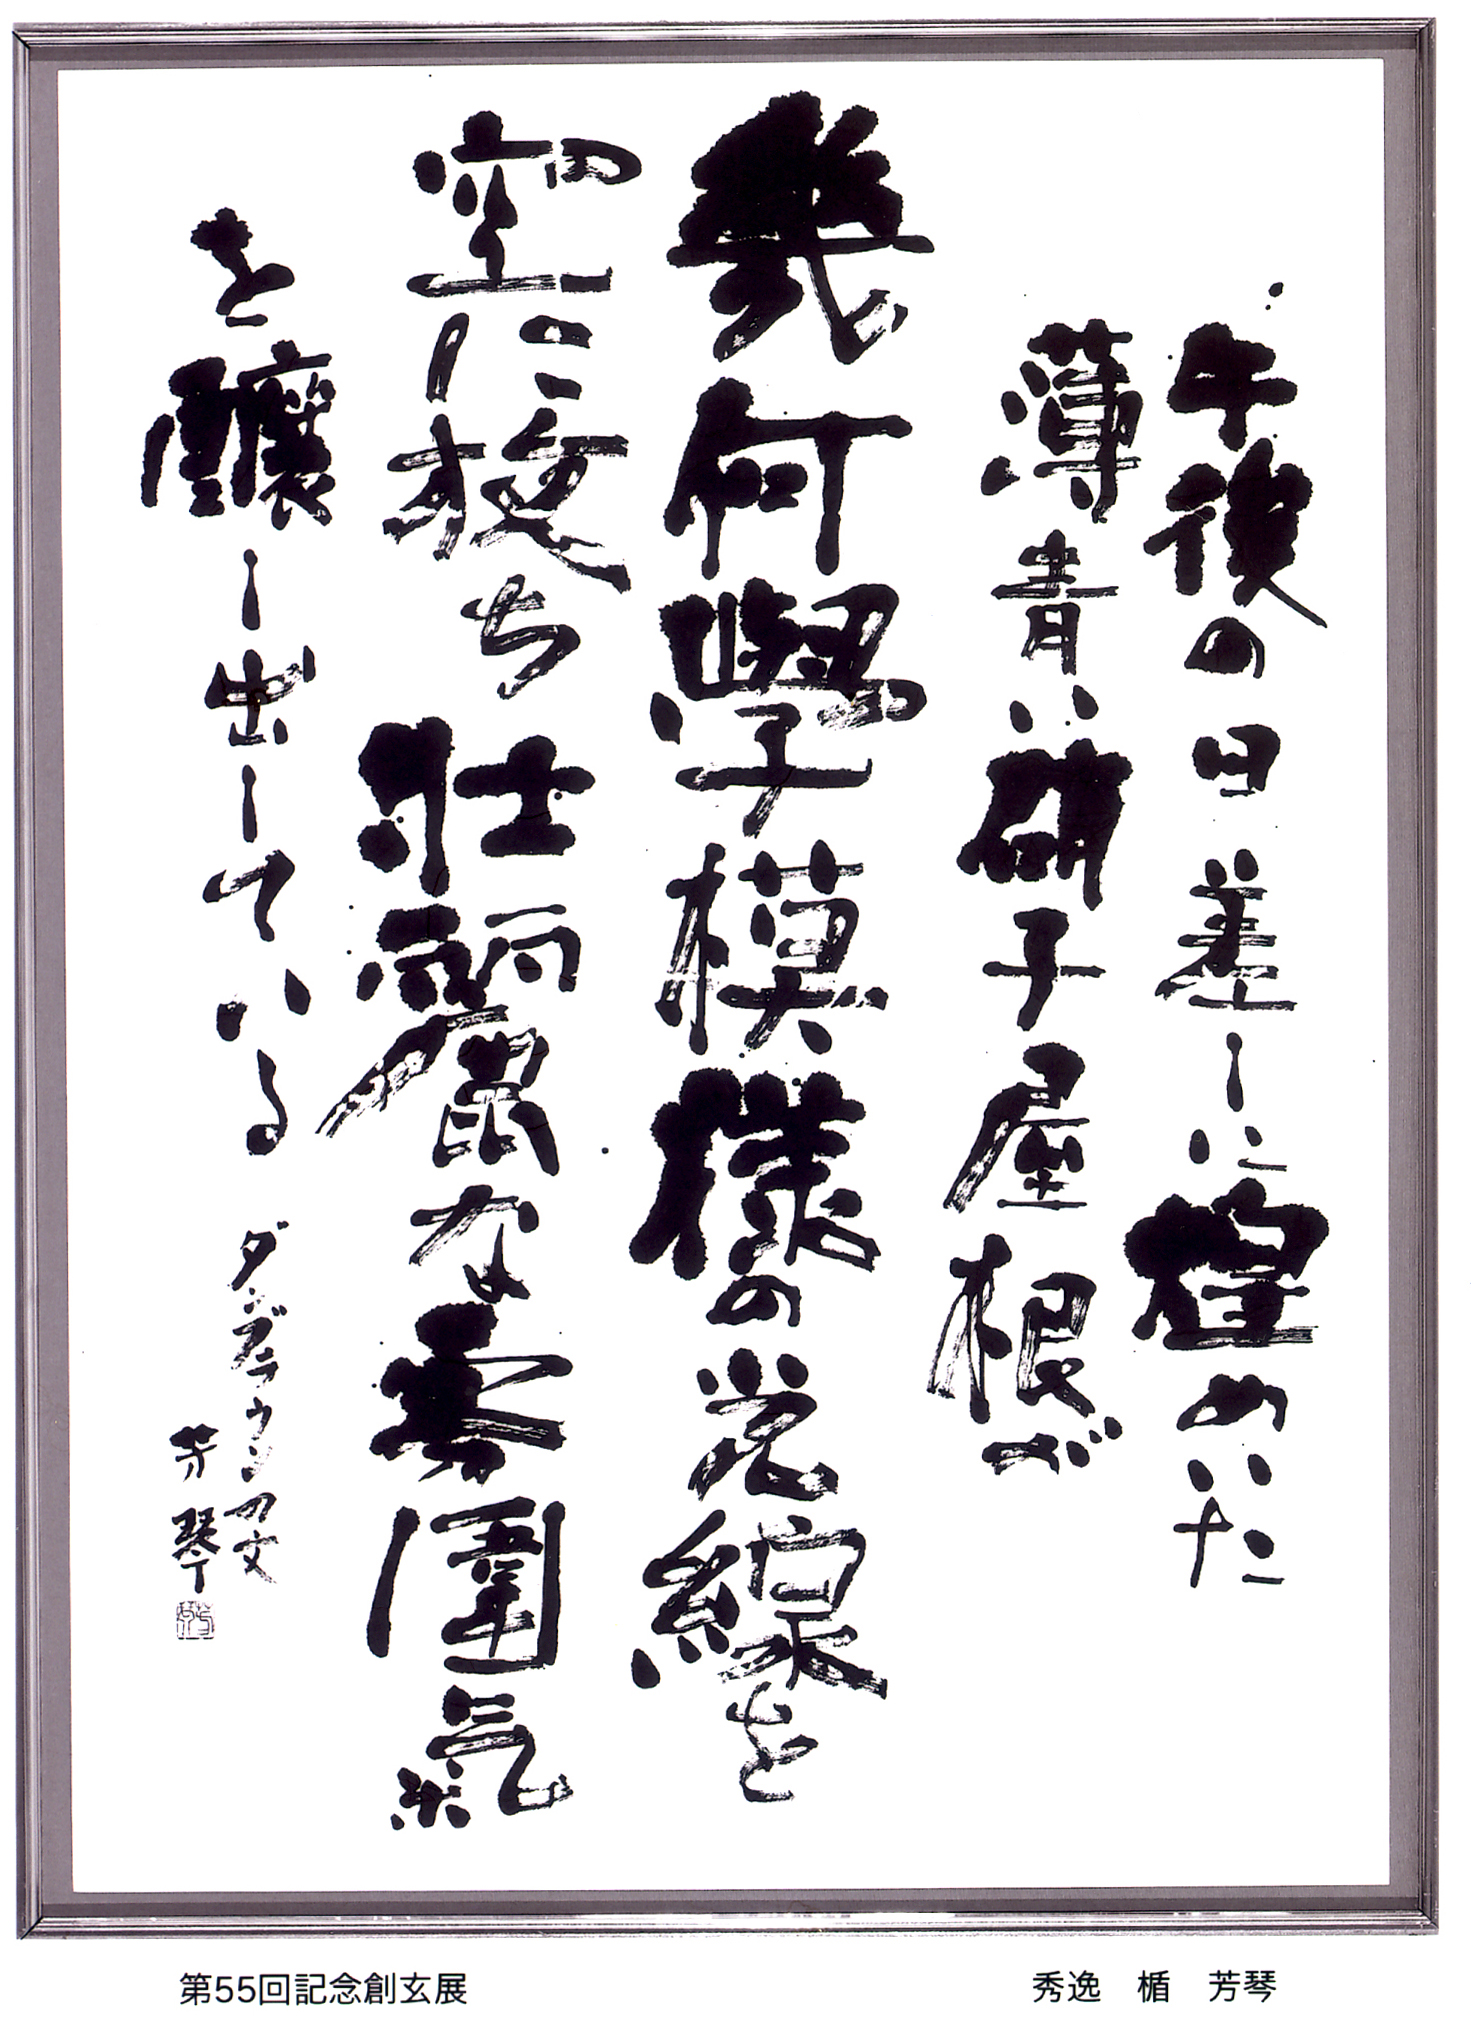 午後の日差しに煌めいた
薄青い硝子屋根が
幾何學模樣の光線を
空に放ち壯麗な雰圍氣
を釀し出している
ダン・ブラウンの文
芳琴
第55回記念創玄展
秀逸　楯　芳琴